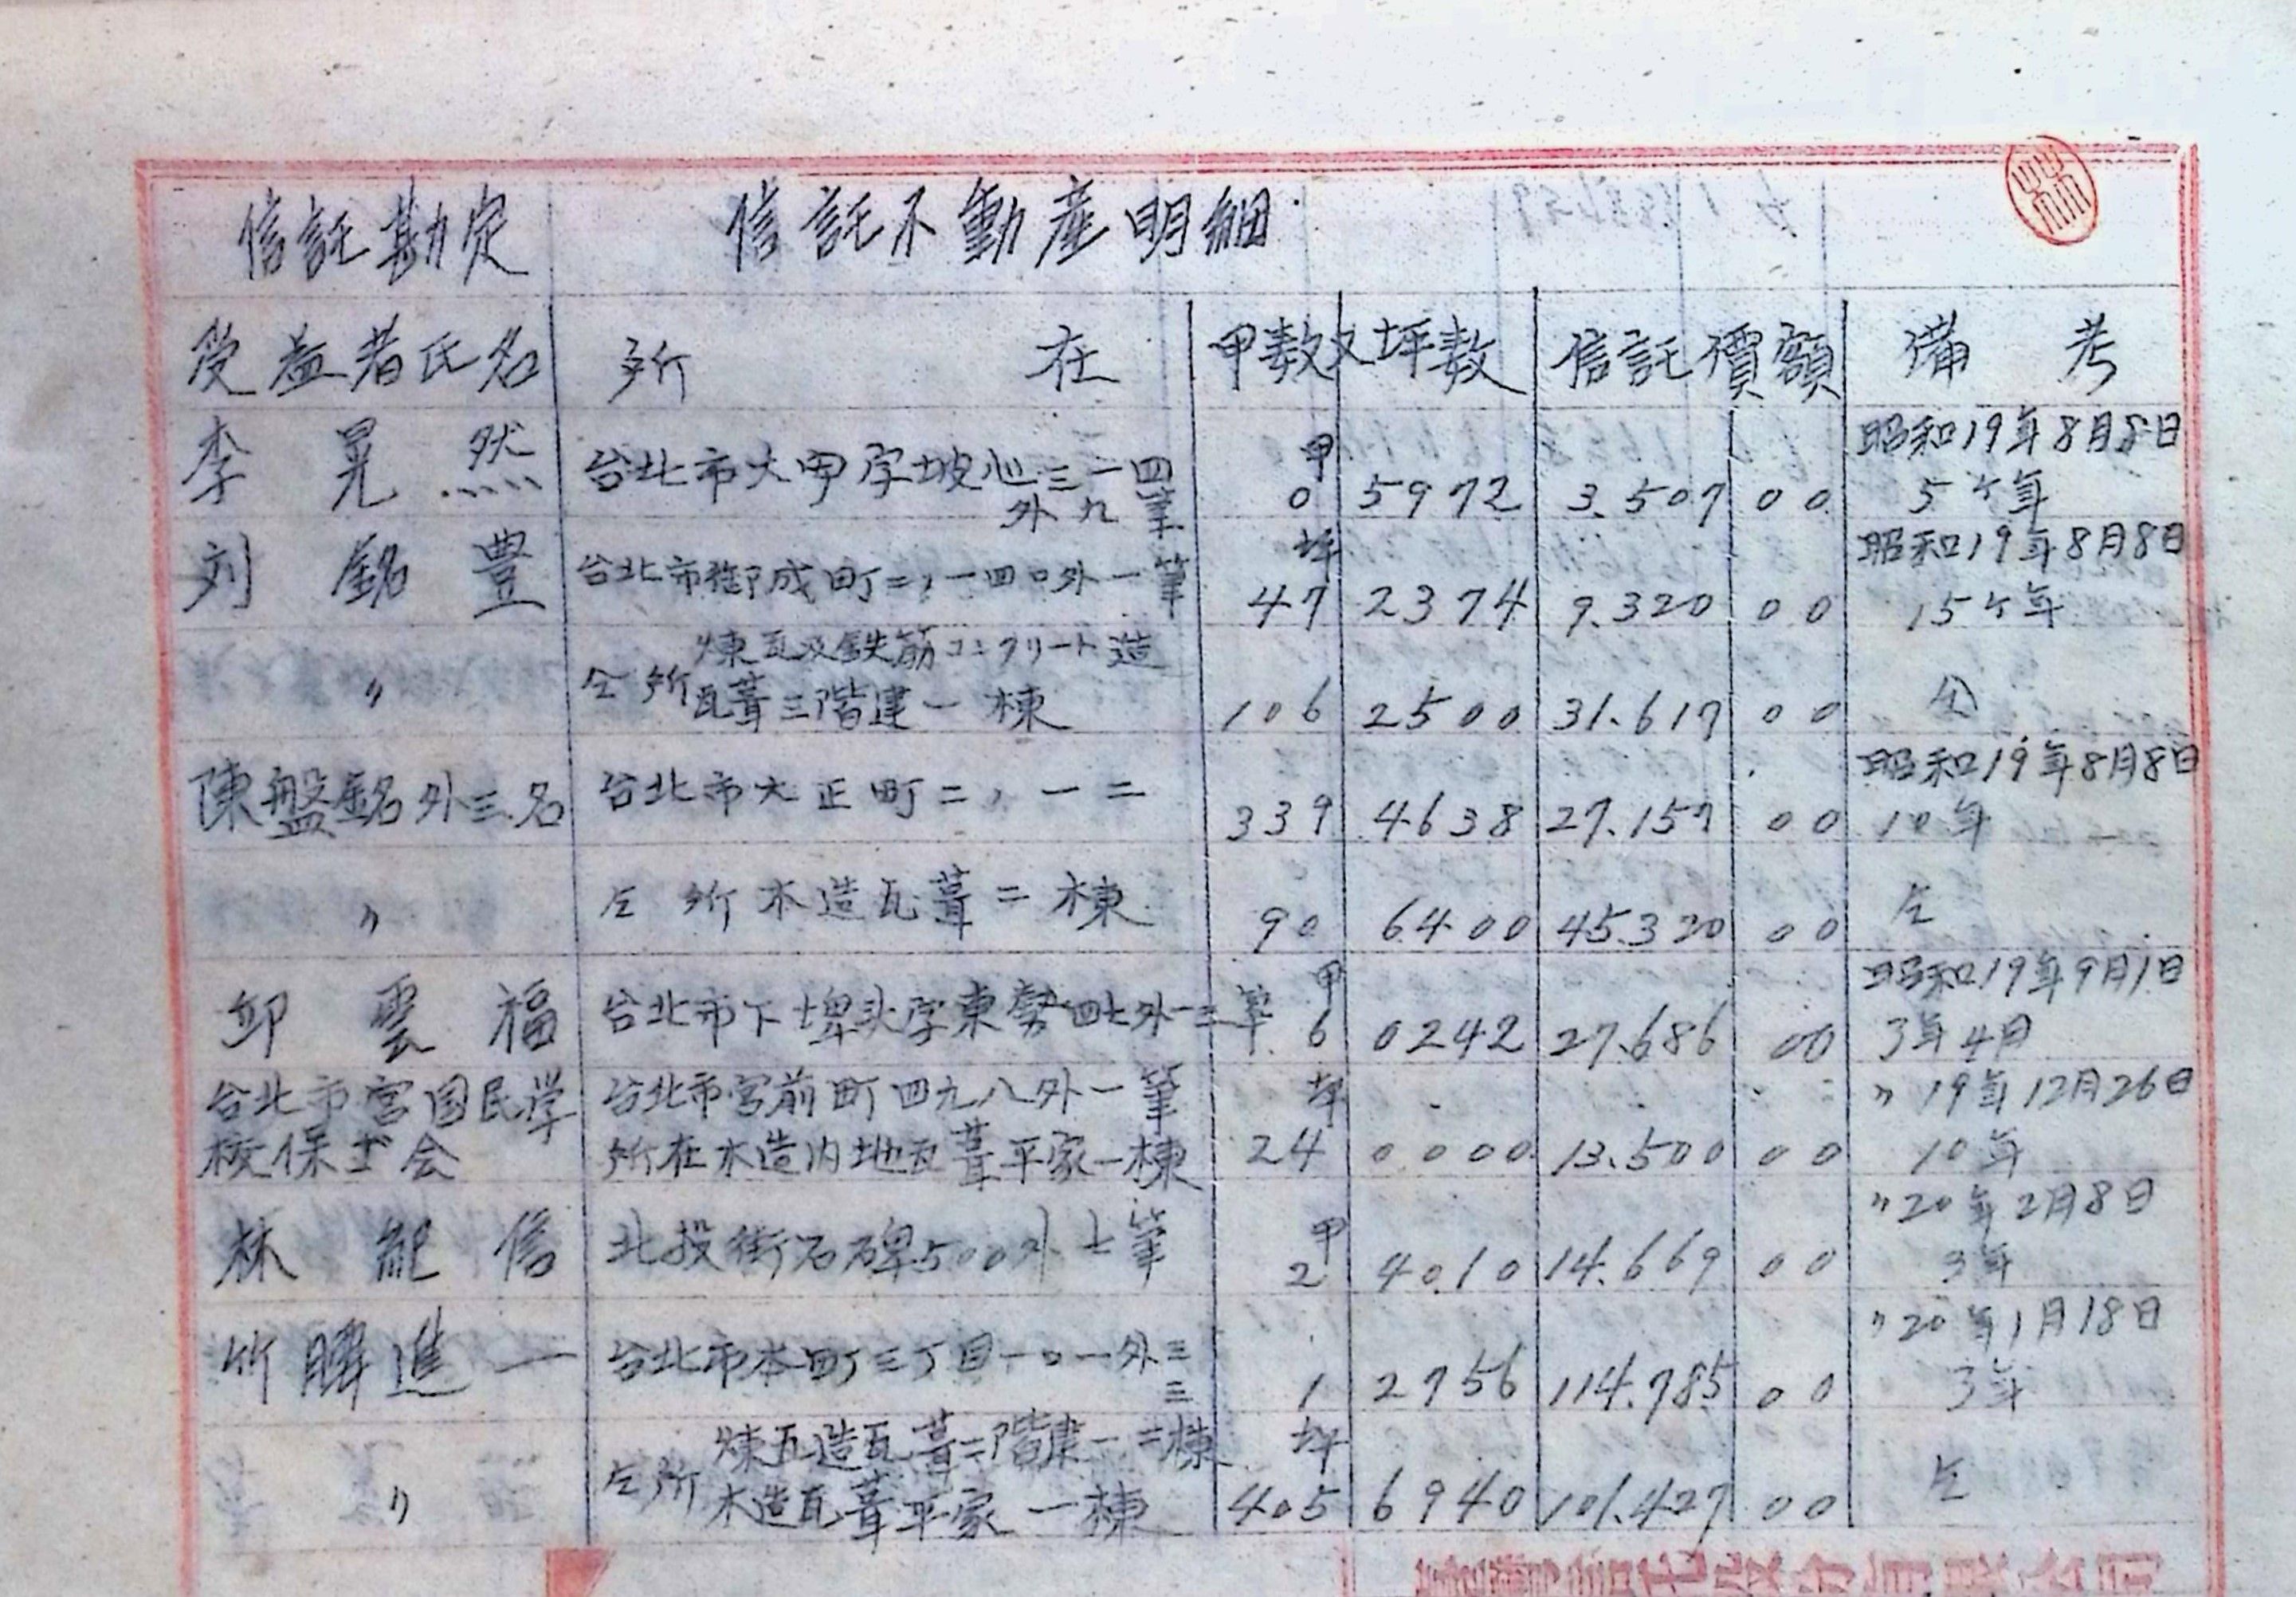 信託勘定 信託不動産明細
受益者氏名 所 在 甲数又坪数 信託價額 備 考
李 晃 然 台北市大甲字坡心三一四 甲 昭和19年8月8日
外九筆 0 5972 3.507 00 5ケ年
刘 銘 豊 台北市御成町二,一四〇外一筆 坪 昭和19年8月8日
47 2374 9.320 00 15ケ年
〃 仝所 煉瓦及鉄筋コンクリート造
瓦葺三階建一棟 106 2500 31.617 00 仝
陳盤銘外三名 台北市大正町二,一二 昭和19年8月8日
339 4638 27.157 00 10年
〃 仝所木造瓦葺二棟 90 6400 45.320 00 仝
邱 雲 福 台北市下埤头字東勢四七外一三筆 甲 昭和19年9月1日
6 0242 27.686 00 3年4月
台北市宮国民学 台北市宮前町四九八外一筆 坪 〃19年12月26日
校保士会 所在木造内地瓦葺平家一棟 24 0000 13.500 00 10年
林 能 信 北投街石碑500外七筆 甲 〃20年2月8日
2 4010 14.669 00 3年
竹 進一 台北市本町三丁目一〇一外三 〃20年1月18日
三 1 2756 114.785 00 3年
〃 仝所 煉瓦造瓦葺二階建一二棟 坪
木造瓦葺平家一棟 405 6940 101.427 00 仝